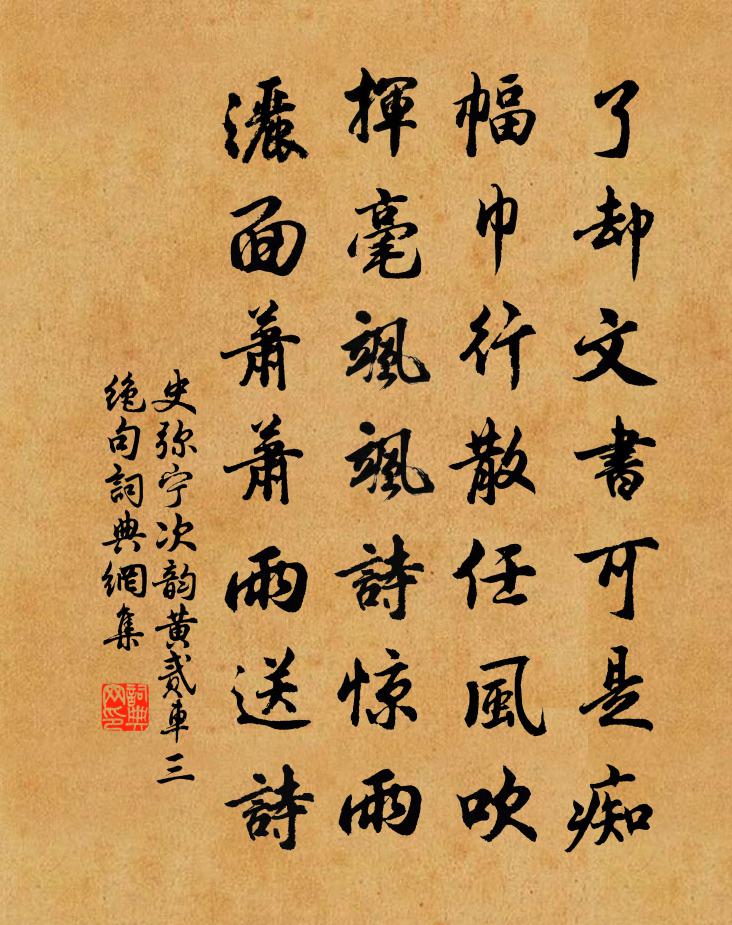 了却文書可是痴
幅巾行散任風吹
揮毫颯颯詩惊雨
灑面蕭蕭雨送詩
史弥宁次韵黄貳車三
绝句詞典網集
詞典
网印